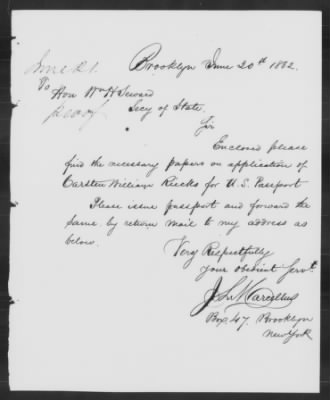 Brooklyn June 20th 1862.
June 21.
To
Hon Wm H Seward
Secy of State.
Sir
Enclosed please
find the necessary papers on application of
Carsten William Riecks for U.S. Passport
Please issue passport and forward the
same by return mail to my address as
below.
Very Respectfully
your obedient Servt.
J. L. Marcellus
Box 47. Brooklyn
New York